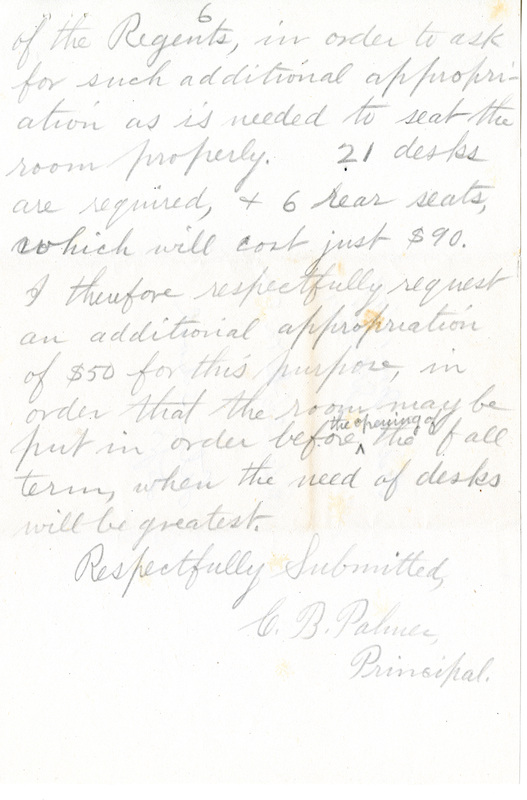 6
of the Regents, in order to ask
for such additional appropri-
ation as is needed to seat the
room properly. 21 desks
are required, + 6 rear seats,
which will cost just $90.
I therefore respectfully request
an additional appropriation
of $50 for this purpose, in
order that the room may be
put in order before the opening of the fall
term, when the need of desks
will be greatest.
Respectfully Submitted,
C. B. Palmer,
Principal.